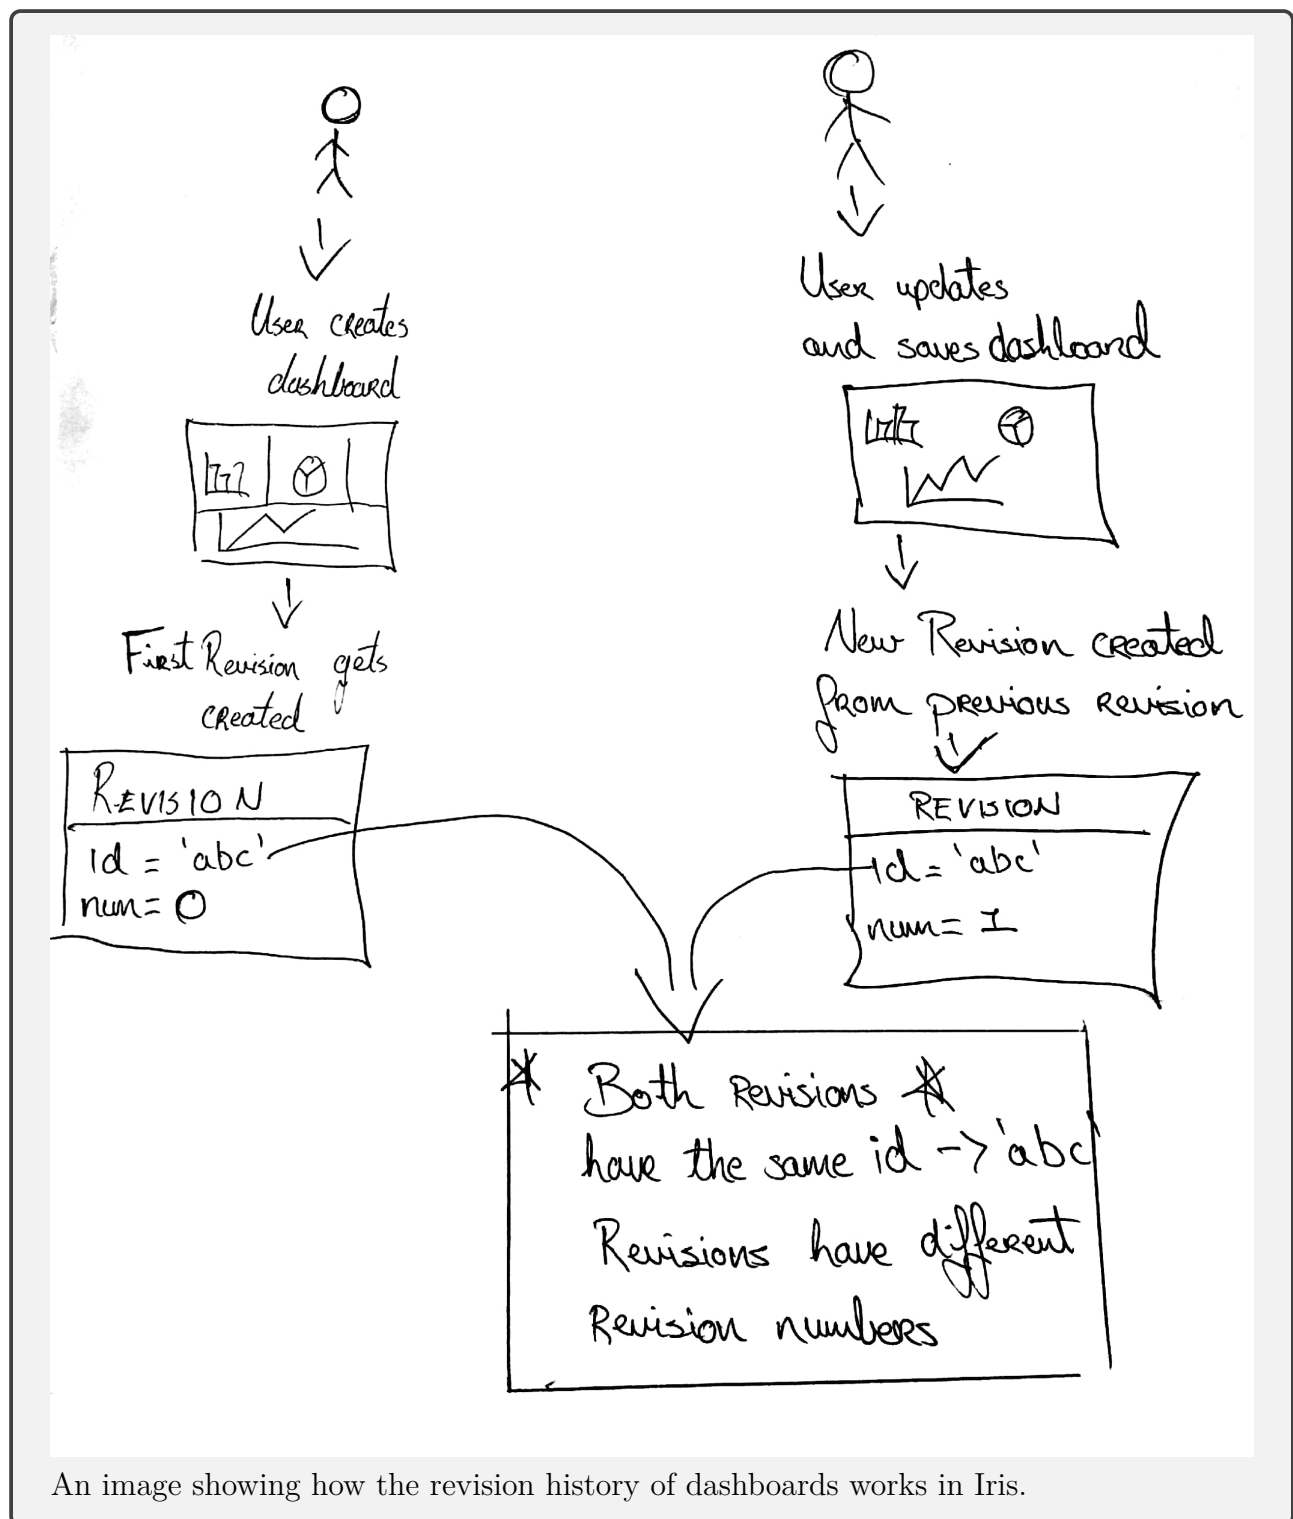 User creates
dashboard
First Revision gets
created
REVISION
id = 'abc'
num = 0
User updates
and saves dashboard
New Revision created
from previous revision
REVISION
id = 'abc'
num = 1
* Both Revisions *
have the same id -> 'abc'
Revisions have different
Revision numbers
An image showing how the revision history of dashboards works in Iris.